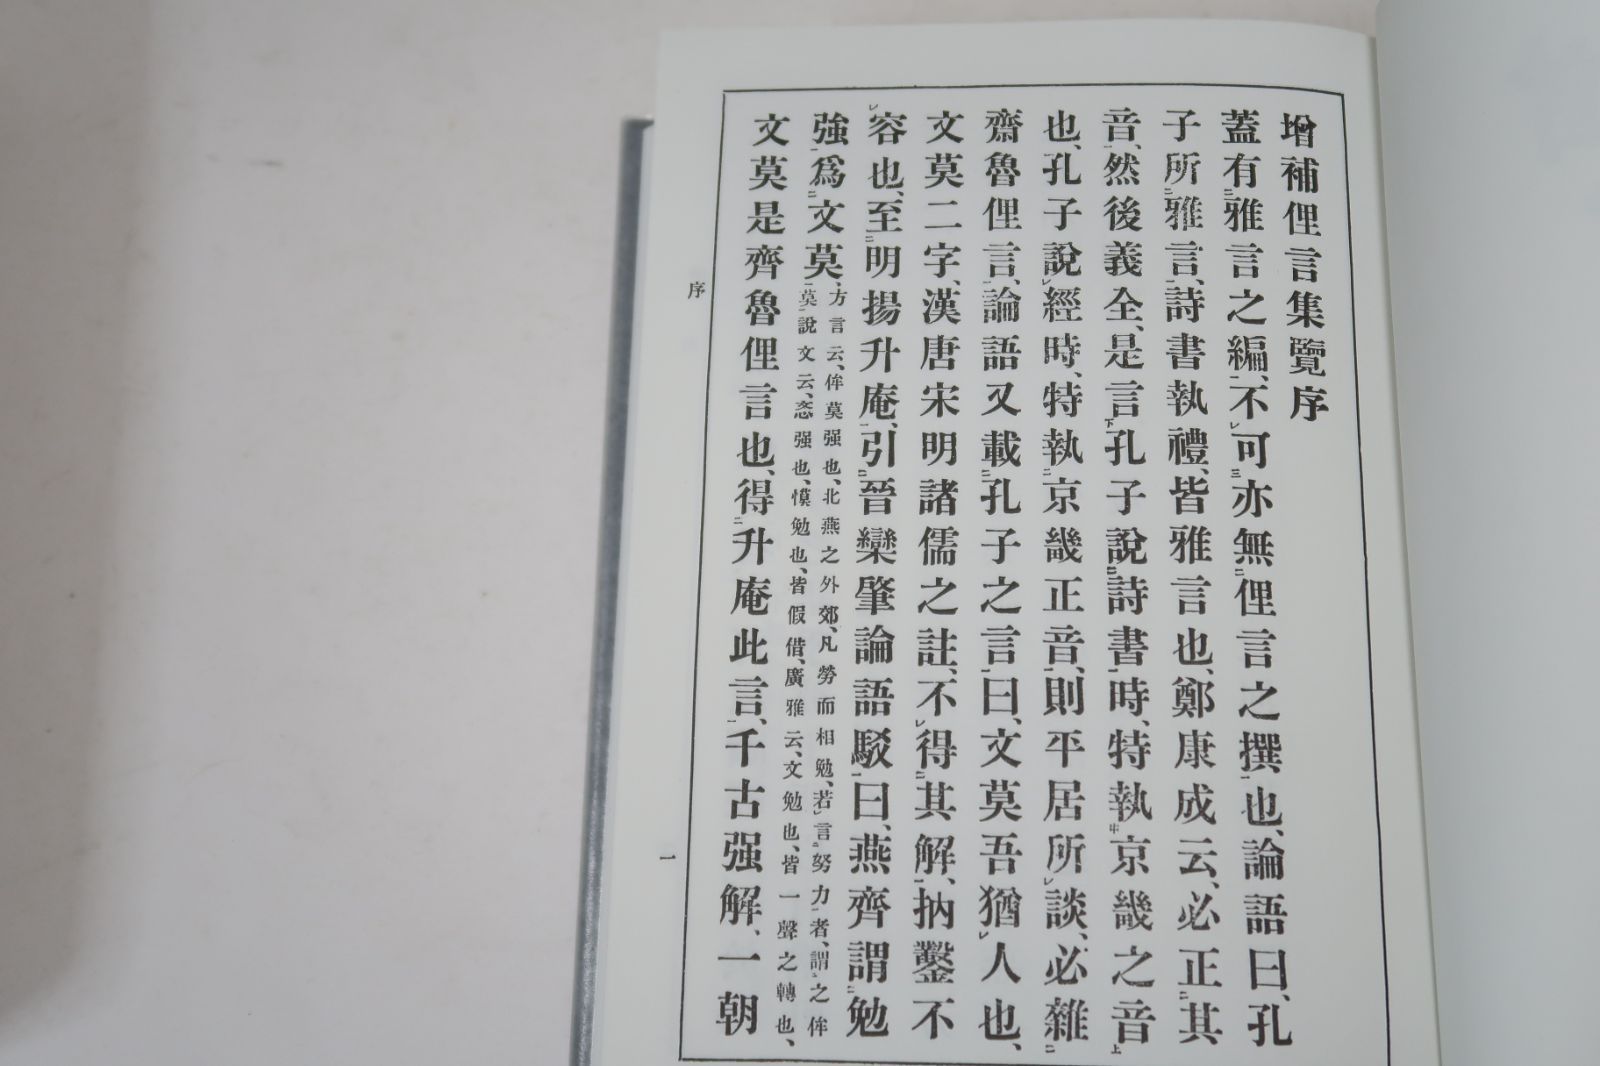 增補俚言集覽序
蓋有雅言之編、不可亦無俚言之撰也、論語曰、孔
子所雅言、詩書執禮、皆雅言也、鄭康成云、必正其
音、然後義全、是言孔子說詩書時、特執京畿之音
也、孔子說經時、特執京畿正音、則平居所談、必雜
齋魯俚言、論語又載孔子之言曰、文莫吾猶人也、
文莫二字、漢唐宋明諸儒之註、不得其解、抐鑿不
容也、至明揚升庵、引晉欒肇論語駁曰、燕齊謂勉
強爲文莫、
方言云、侔莫强也、北燕之外郊、凡勞而相勉、若言努力者、謂之侔
莫、說文云、忞强也、慔勉也、皆假借、廣雅云、文勉也、皆一聲之轉也、
文莫是齊魯俚言也、得升庵此言、千古强解、一朝
序
一